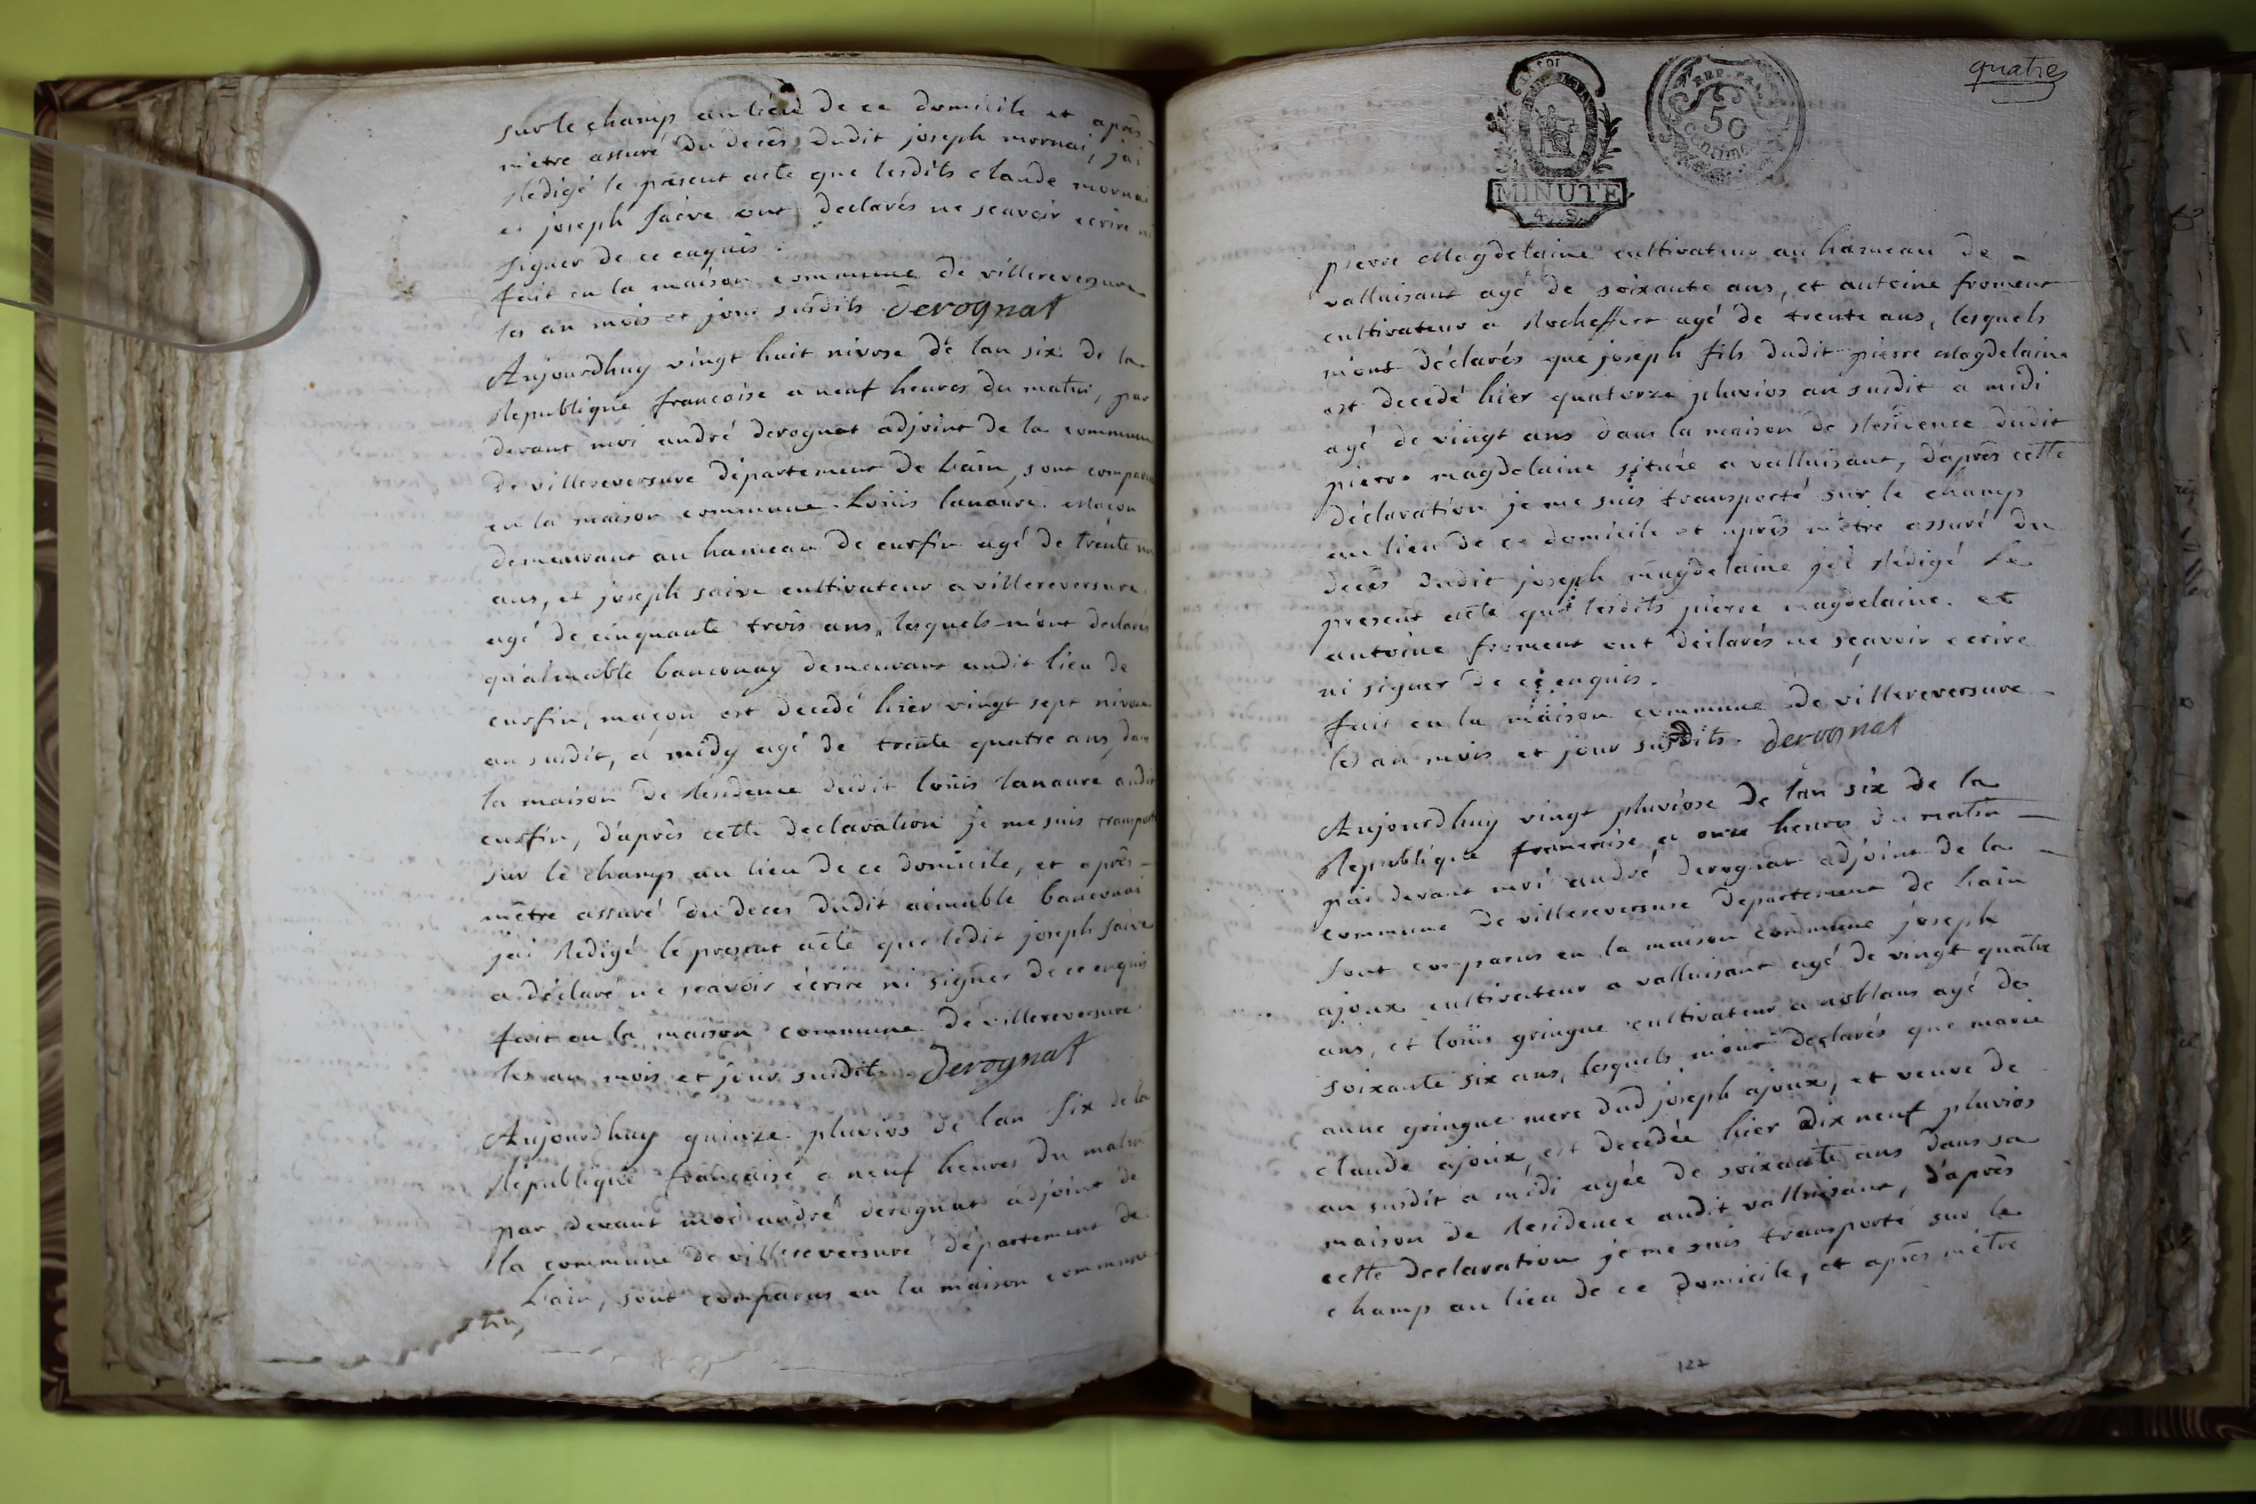 sur le champ au lieu de ce domicile et après
m'etre assuré du decès dudit joseph mornai, j'ai
redigé le présent acte que lesdits claude mornai
et joseph saive ont declarés ne sçavoir ecrire ni
signer de ce enquis.
fait en la maison commune de villereversure
les an mois et jour susdits Derognat
Aujourdhuy vingt huit nivose de lan six de la
Republique francoise a neuf heures du matin, par
devant moi andré derognat adjoint de la commune
de villereversure département de Lain, sont comparus
en la maison commune Loüis lanaure Macon
demeurant au hameau de curfin agé de trente
ans, et joseph saive cultivateur a villereversure
agé de cinquante trois ans, lesquels m'ont declarés
qu'aimable banconay demeurant audit lieu de
curfin, maçon est decedé hier vingt sept nivose
an susdit, a midy agé de trente quatre ans, dans
la maison de residence dudit loüis lanaure audit
curfin, d'après cette declaration je me suis transporté
sur le champ au lieu de ce domicile, et après
m'être assuré du deces dudit aimable banconai
j'ai redigé le present acte que ledit joseph saive
a déclaré ne scavoir écrire ni signer de ce enquis
fait en la maison commune de villereversure
les an mois et jour susdit Derognat
Aujourdhuy quinze pluvios de lan six de la
République francaise a neuf heures du matin
par devant moi andré derognat adjoint de
la commune de villereversure département de
Lain, sont comparus en la maison commune
quatre
MINUTE
REP. FRA
50
Centimes
pierre Magdelaine cultivateur au hameau de
valluisant agé de soixante ans, et antoine froment
cultivateur a Rocheffort agé de trente ans, lesquels
m'ont déclarés que joseph fils dudit pierre Magdelaine
est decedé hier quatorze pluvios an susdit a midi
agé de vingt ans dans la maison de residence dudit
pierre magdelaine située a valluisant, d'après cette
déclaration je me suis transporté sur le champ
au lieu de ce domicile et après m'être assuré du
decès dudit joseph magdelaine j'ai rédigé Le
present acte que lesdits pierre magdelaine et
antoine froment ont déclarés ne sçavoir ecrire
ni signer de ce enquis.
fait en la maison commune de villereversure
les an mois et jour susdits. derognat
Aujourdhuy vingt pluviose de lan six de la
Republique francaise a onze heures du matin
par devant moi andré derognat adjoint de la
commune de villereversure département de Lain
sont comparus en la maison commune joseph
ajoux cultivateur a valluisant agé de vingt quatre
ans, et loüis gringue cultivateur a noblans agé de
soixante six ans, lesquels m'ont declarés que marie
anne gringue mere dud joseph ajoux, et veuve de
claude ajoux, est decedée hier dix neuf pluvios
an susdit a midi agée de soixante ans dans sa
maison de Residence audit valluisant, d'après
cette declaration je me suis transporté sur le
champ au lieu de ce domicile, et après m'être
127